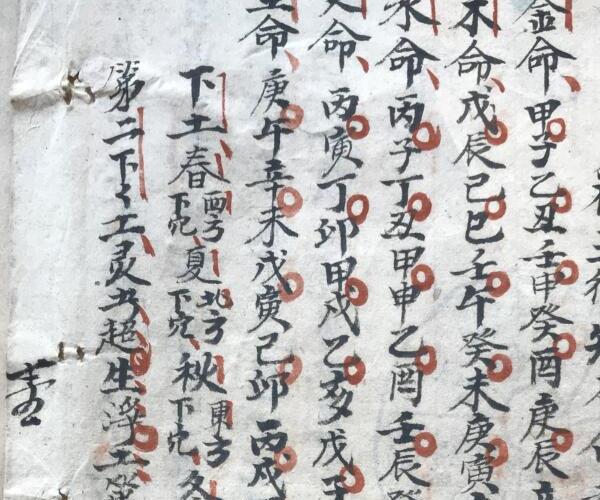 金命甲子乙丑壬申癸酉庚辰
木命戊辰己巳壬午癸未庚寅
水命丙子丁丑甲申乙酉壬辰癸
火命丙寅丁卯甲戌乙亥戊子
土命庚午辛未戊寅己卯丙戌
下土春西方下穴夏北方下穴秋東方下穴冬
第二下々土灵超生浮土第